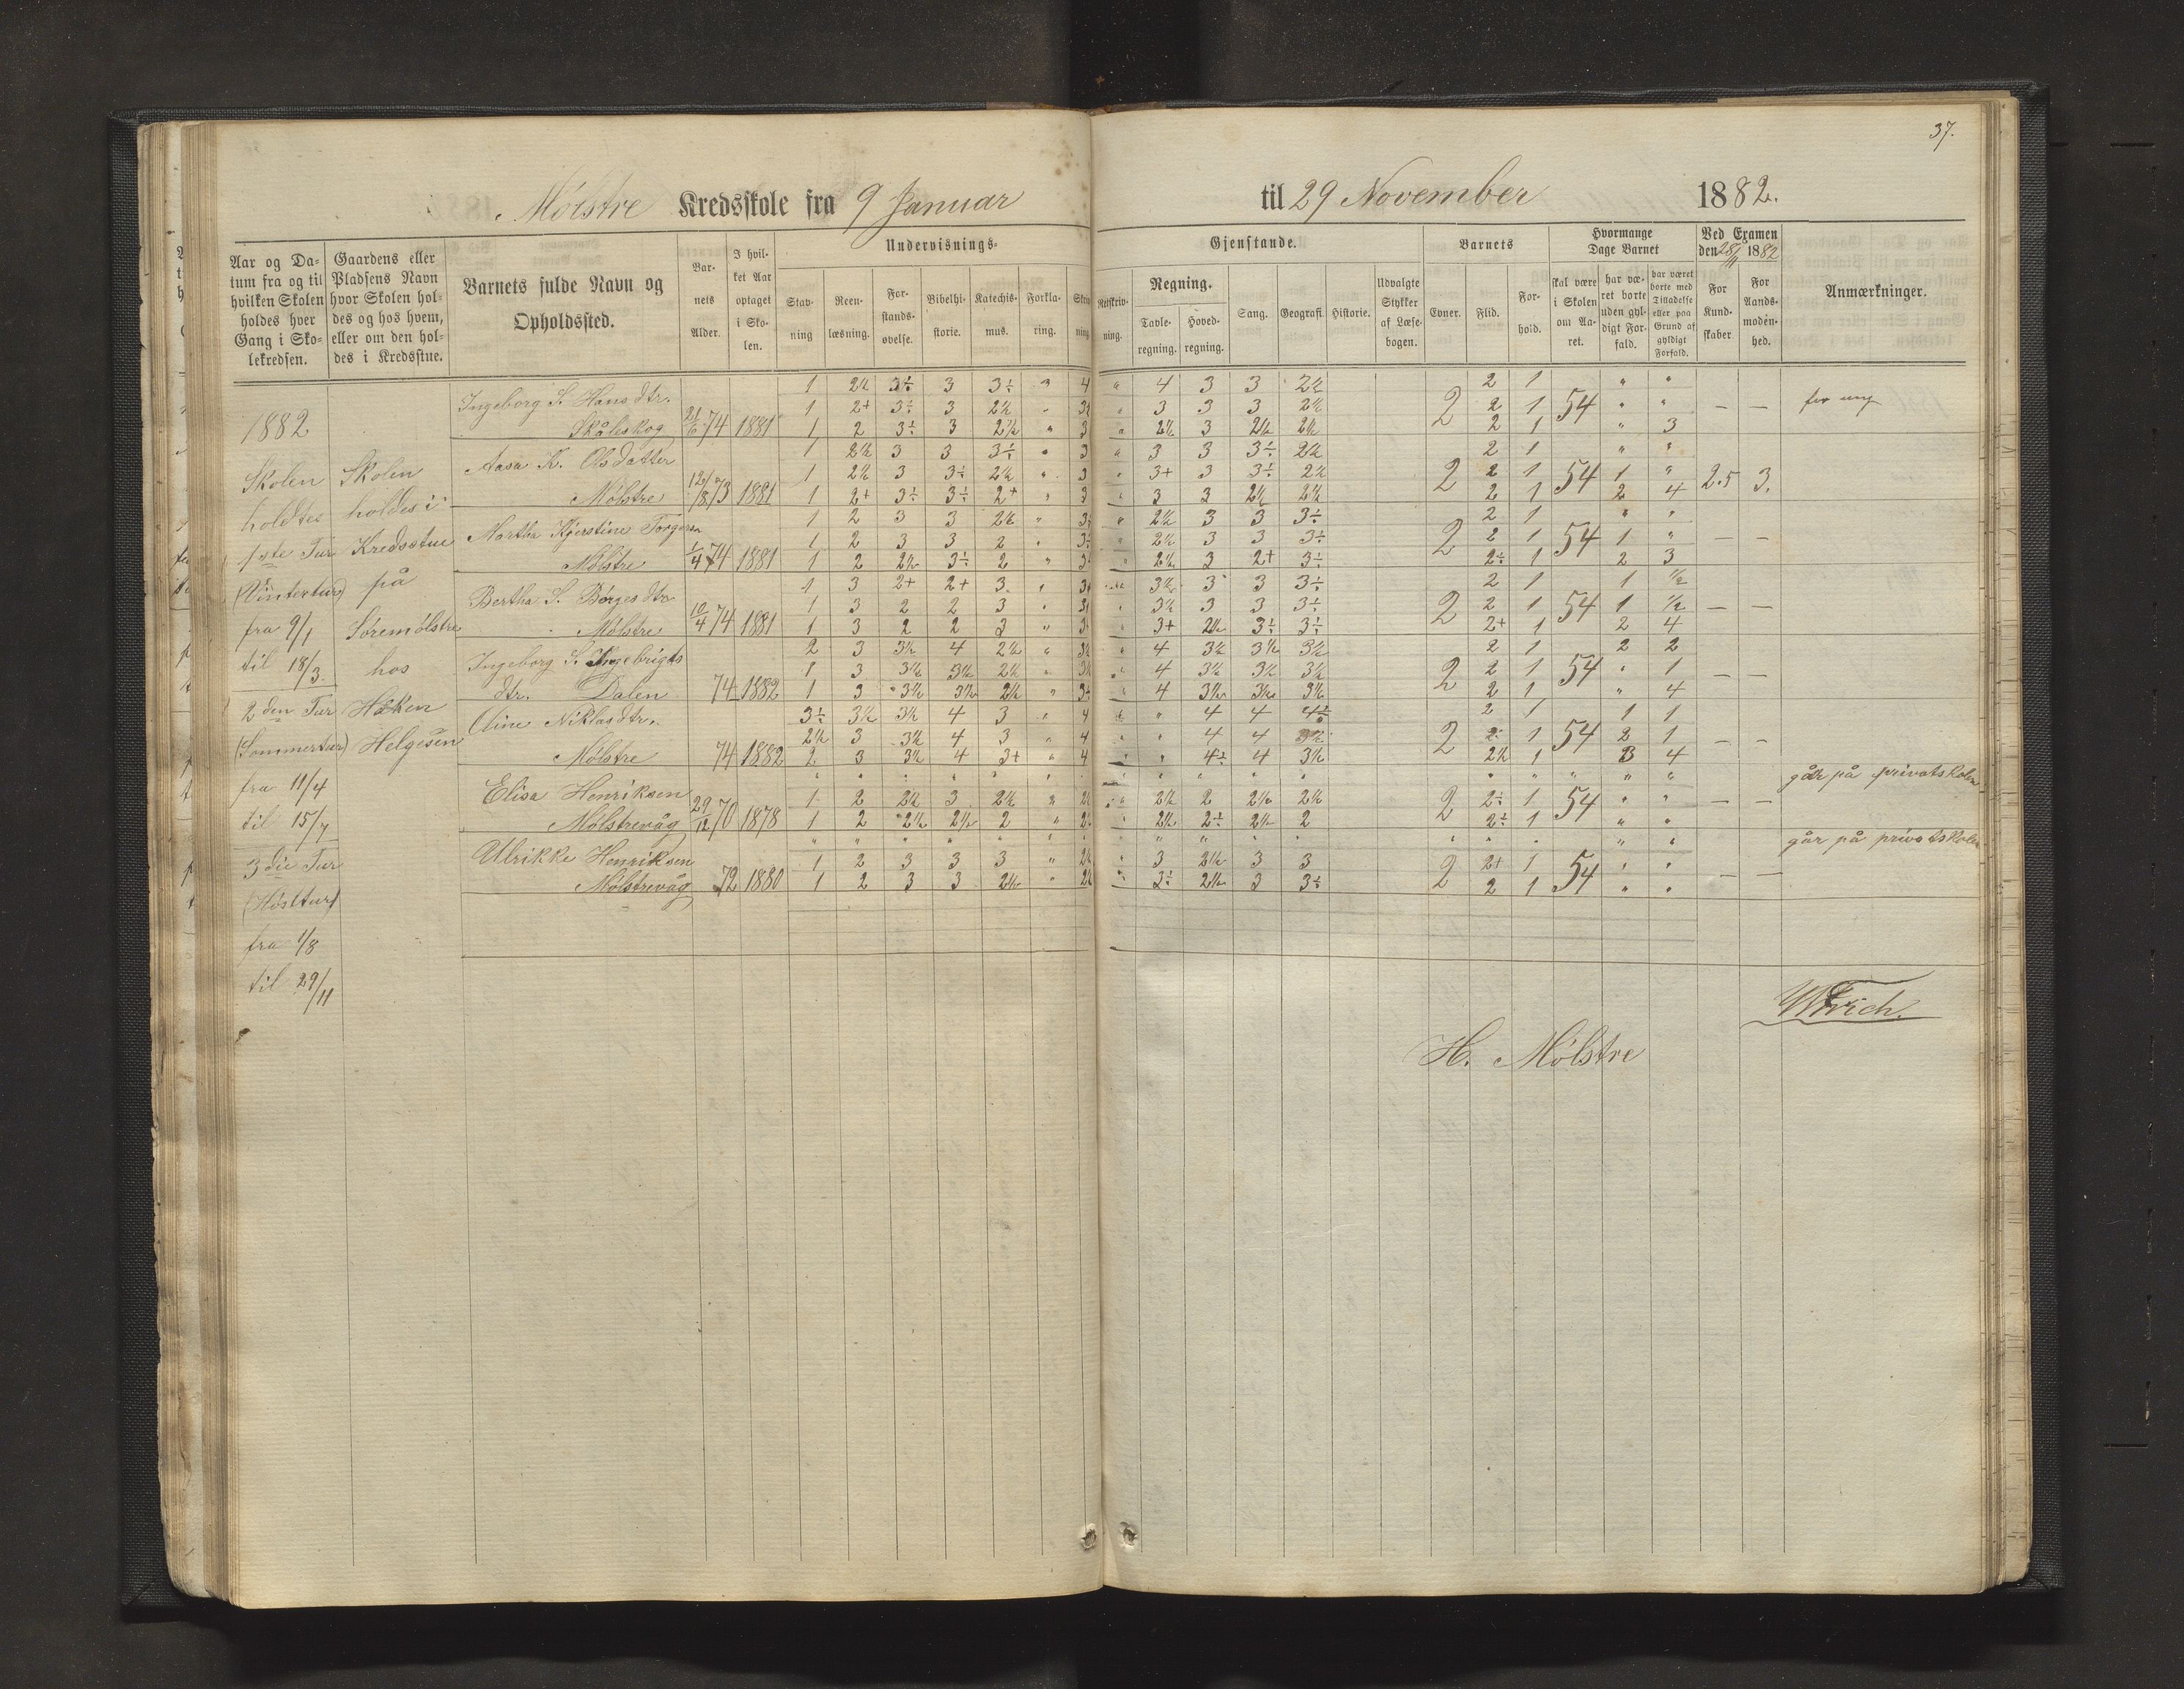 37.
Mölstre Kredsskole fra 9 Januar til 29 November 1882.
Aar og Da-
tum fra og til
hvilken Skolen
holdes hver
Gang i Sko-
lekredsen.
Gaardens eller
Pladsens Navn
hvor Skolen hol-
des og hos hvem,
eller om den hol-
des i Kredsstue.
Barnets fulde Navn og
Opholdssted.
Bar-
nets
Alder.
I hvil-
ket Aar
optaget
i Sko-
len.
Undervisnings-
Stav-
ning
Reen-
læsning.
For-
stands-
øvelse.
Bibelhi-
storie.
Katechis-
mus.
Forkla-
ring.
Skriv
ning
Gjenstande.
Retskriv-
ning.
Regning.
Tavle-
regning.
Hoved-
regning.
Sang.
Geografi.
Historie.
Udvalgte
Stykker
af Læse-
bogen.
Barnets
Evner.
Flid.
For-
hold.
Hvormange
Dage Barnet
skal være
i Skolen
om Aa-
ret.
har væ-
ret borte
uden gyl-
digt For-
fald.
har været
borte med
Tilladelse
eller paa
Grund af
gyldigt
Forfald.
Ved Examen
den 28/11 1882
For
Kund-
skaber
For
Aands-
modén-
hed.
Anmærkninger.
1882
Skolen
holdtes
1ste Tur
(Vintertur)
fra 9/1
til 18/3.
2den Tur
(Sommertur)
fra 11/4
til 15/7
3die Tur
(Hösttur)
fra 1/8
til 29/11
Skolen
holdes i
Kredsstue
på
Söremölstre
hos
Håken
Helgesen
Ingeborg S. Hansdtr.
Skåleskog 21/6 74 1881
1 2½ 3÷ 3 3÷ " 4 " 4 3 3 2½ 2 1 " "
1 2+ 3÷ 3 2½ " " 3 3 3 2½ 2 2 1 54 " " — — for ung
1 2 3÷ 3 2½ " 3 " 2½ 3 2½ 2½ 2 1 " 3
Aasa K. Olsdatter
Mölstre 12/8 73 1881
1 2½ 3 3 3÷ " 3 " 3 3 3÷ 2½ 2 1 " "
1 2½ 3 3÷ 2½ " 3 " 3+ 3 3÷ 2½ 2 2 1 54 1 " 2.5 3.
1 2+ 3÷ 3÷ 2+ " 3 " 3 3 2½ 2½ 2 1 2 4
Martha Kjerstine
Mölstre 1/4 74 1881
1 2 3 3 2½ " " 2½ 3 3 3÷ 2 1 " "
1 2 3 3 2 " 3÷ " 2½ 3 3 3÷ 2 2 1 54 1 " — —
1 2 2½ 3÷ 2 " " 2½ 3 2+ 3÷ 2÷ 1 2 3
Bertha S. Börgesdtr
Mölstre 10/4 74 1881
1 3 2+ 2+ 3 " 3½ 3 3 3÷ 2 1 1 ½
1 3 2 2 3 " " 3½ 3 3 3÷ 2 2 1 54 1 ½ — —
1 3 2 2 3 " " 3+ 2½ 3÷ 3÷ 2+ 1 2 4
Ingeborg S. Ingebrigts
dtr. Dalen 74 1882
2 3 3½ 4 2½ " 3½ " 4 3½ 3½ 3½ 2 1 2 2
1 3 3½ 3½ 2½ " 3½ " 4 3½ 3½ 3½ 2 2 1 54 " 1 — —
1 3 3½ 3½ 2½ " " 4 3½ 3½ 3½ 2 1 " 4
Oline Niklasdtr.
Mölstre 74 1882
3÷ 3½ 3½ 4 3 " 4 " " 4 4 4÷ 2 1 1 1
2½ 3 3½ 4 3 " 4 " " 4 4 3½ 2 2 1 54 2 1 — —
2 3 3½ 4 3+ " 4 " " 4÷ 4 3½ 2½ 1 3 4
Elisa Henriksen
Mölstrevåg 29/12 70 1878
" " " " " " " " " " " " " " " går på privatskolen
1 2 2½ 3 2½ " 2½ " 2½ 2 2½ 2½ 2 2÷ 1 54 " " — —
1 2 2½ 2½ 2 " " 2½ 2÷ 2½ 2 2÷ 1 " "
Ulrikke Henriksen
Mölstrevåg 72 1880
" " " " " " " " " " " " " " går på privatskolen
1 2 3 3 3 " 2½ " 3 2½ 3 3 2 2+ 1 54 " " — —
1 2 3 3 2½ " 2½ " 3÷ 2½ 3 3÷ 2 1 " "
H. Mölstre